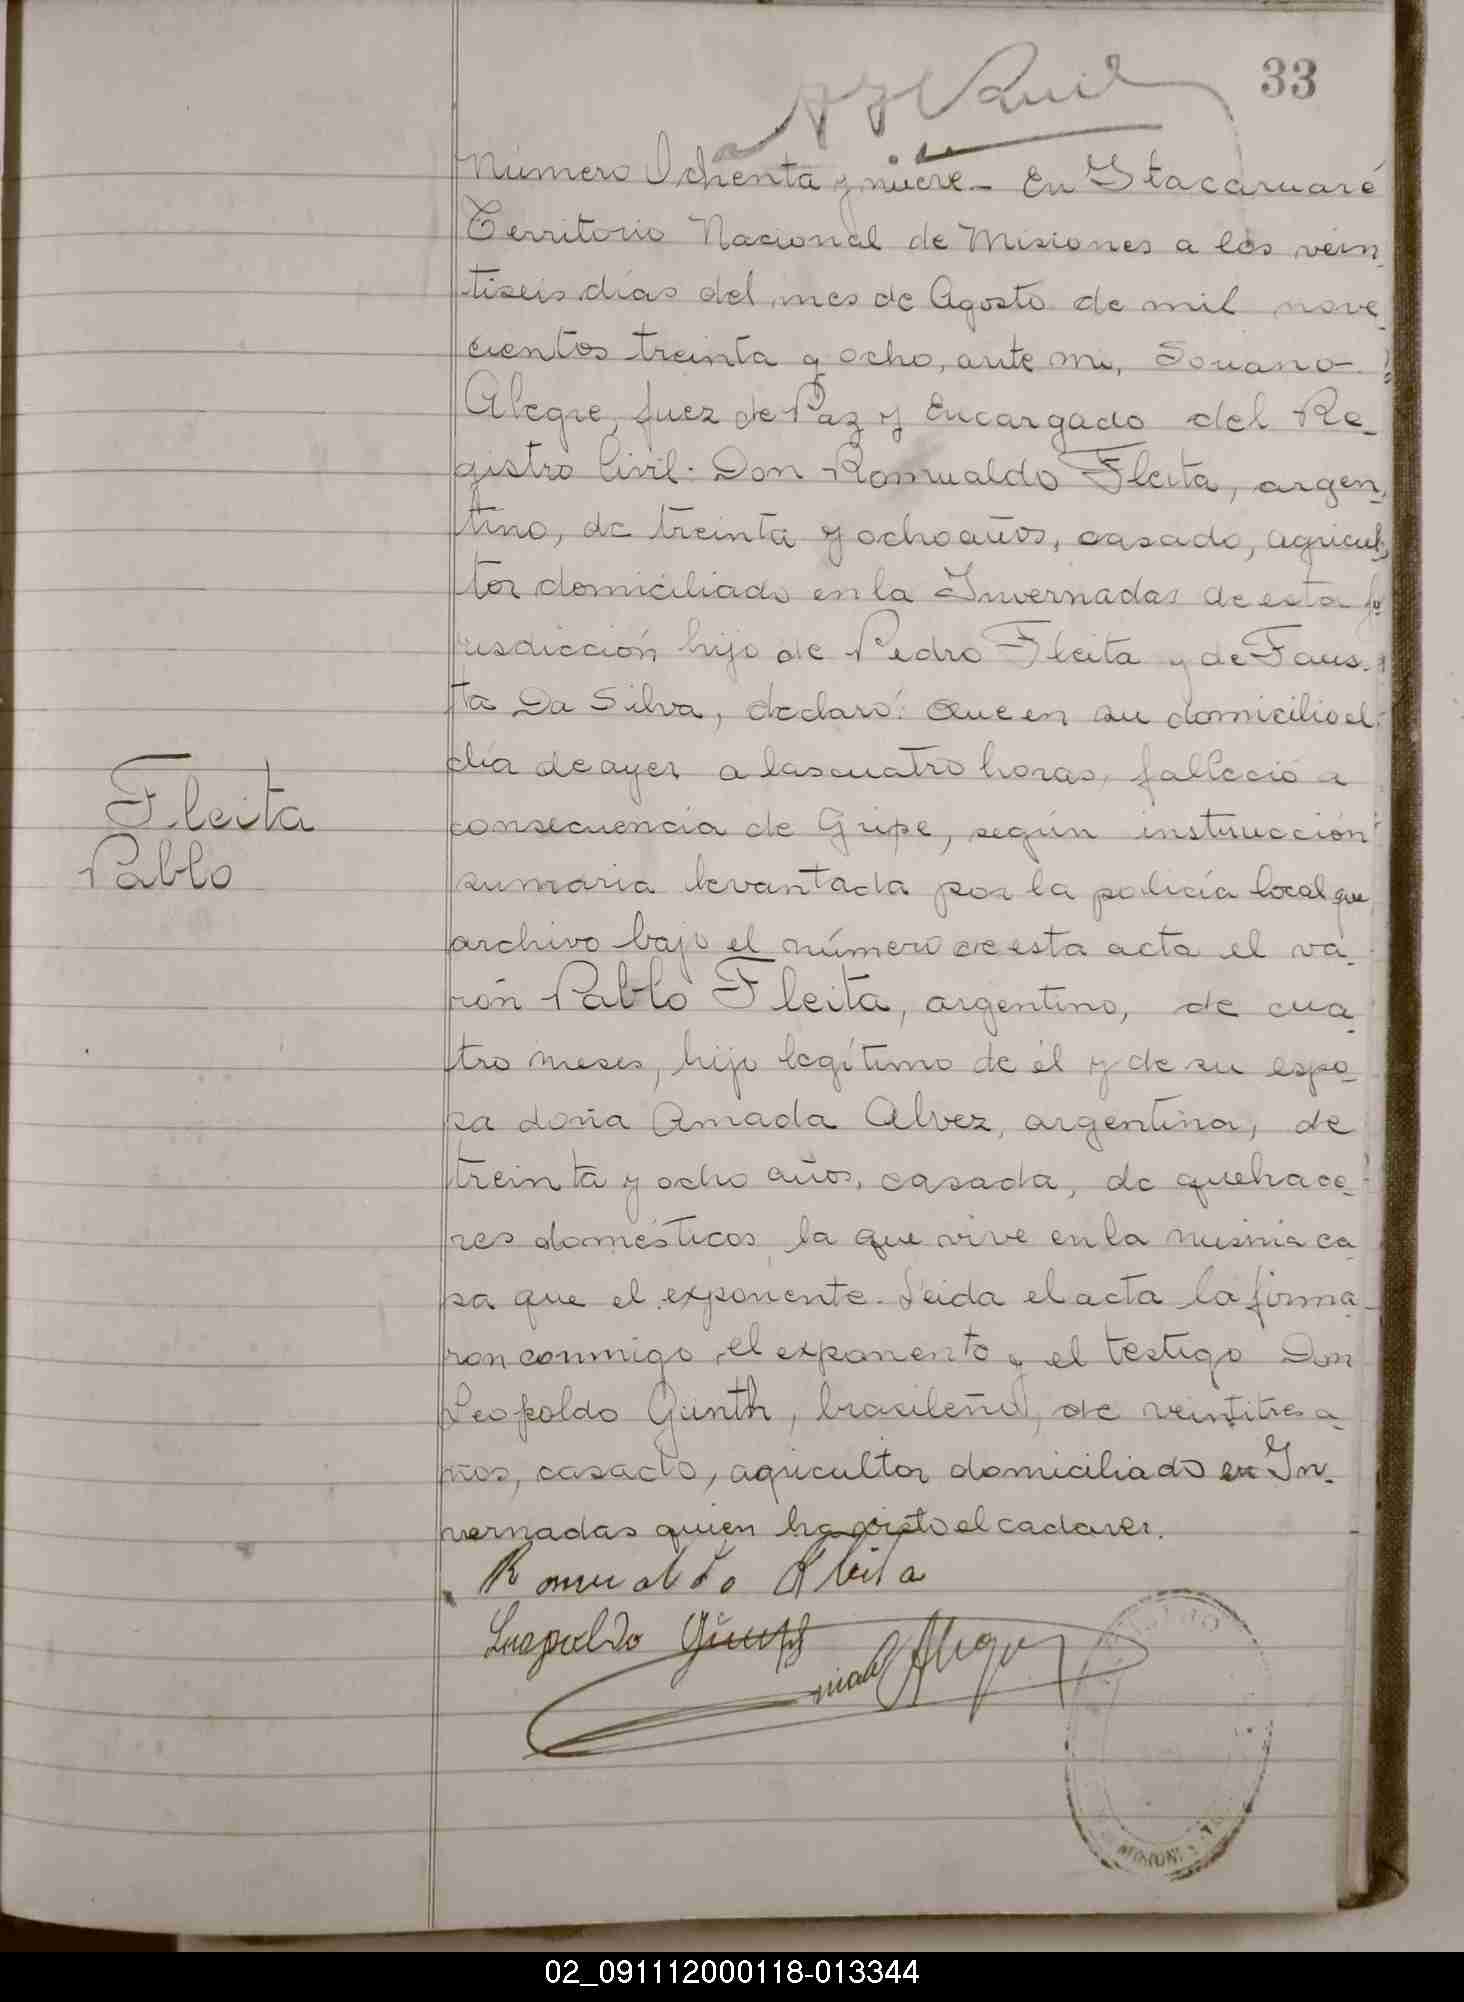 33
Número Ochenta y nueve - En Itacaruaré
Territorio Nacional de Misiones a los vein-
tiseis días del mes de Agosto de mil nove-
cientos treinta y ocho, ante mi, Soriano
Alegre, Juez de Paz y Encargado del Re-
gistro Civil. Don Romualdo Fleita, argen-
tino, de treinta y ocho años, casado, agricul-
tor domiciliado en la Invernadas de esta ju-
risdicción hijo de Pedro Fleita y de Faus-
ta Da Silva, declaró: Que en su domicilio el
día de ayer a las cuatro horas, falleció a
consecuencia de Gripe, según instrucción
sumaria levantada por la policía local que
archivo bajo el número de esta acta el va-
rón Pablo Fleita, argentino, de cua-
tro meses, hijo legítimo de él y de su espo-
sa doña Amada Alvez, argentina, de
treinta y ocho años, casada, de quehace-
res domésticos, la que vive en la misma ca-
sa que el exponente. Leida el acta la firma-
ron conmigo el exponente y el testigo Don
Leopoldo Günth, brasileño, de veintitres a-
ños, casado, agricultor domiciliado en In-
vernadas quien ha visto el cadaver.
Fleita
Pablo
Romualdo Fleita
Leopoldo
Alegre
MISIONES
02_091112000118-013344